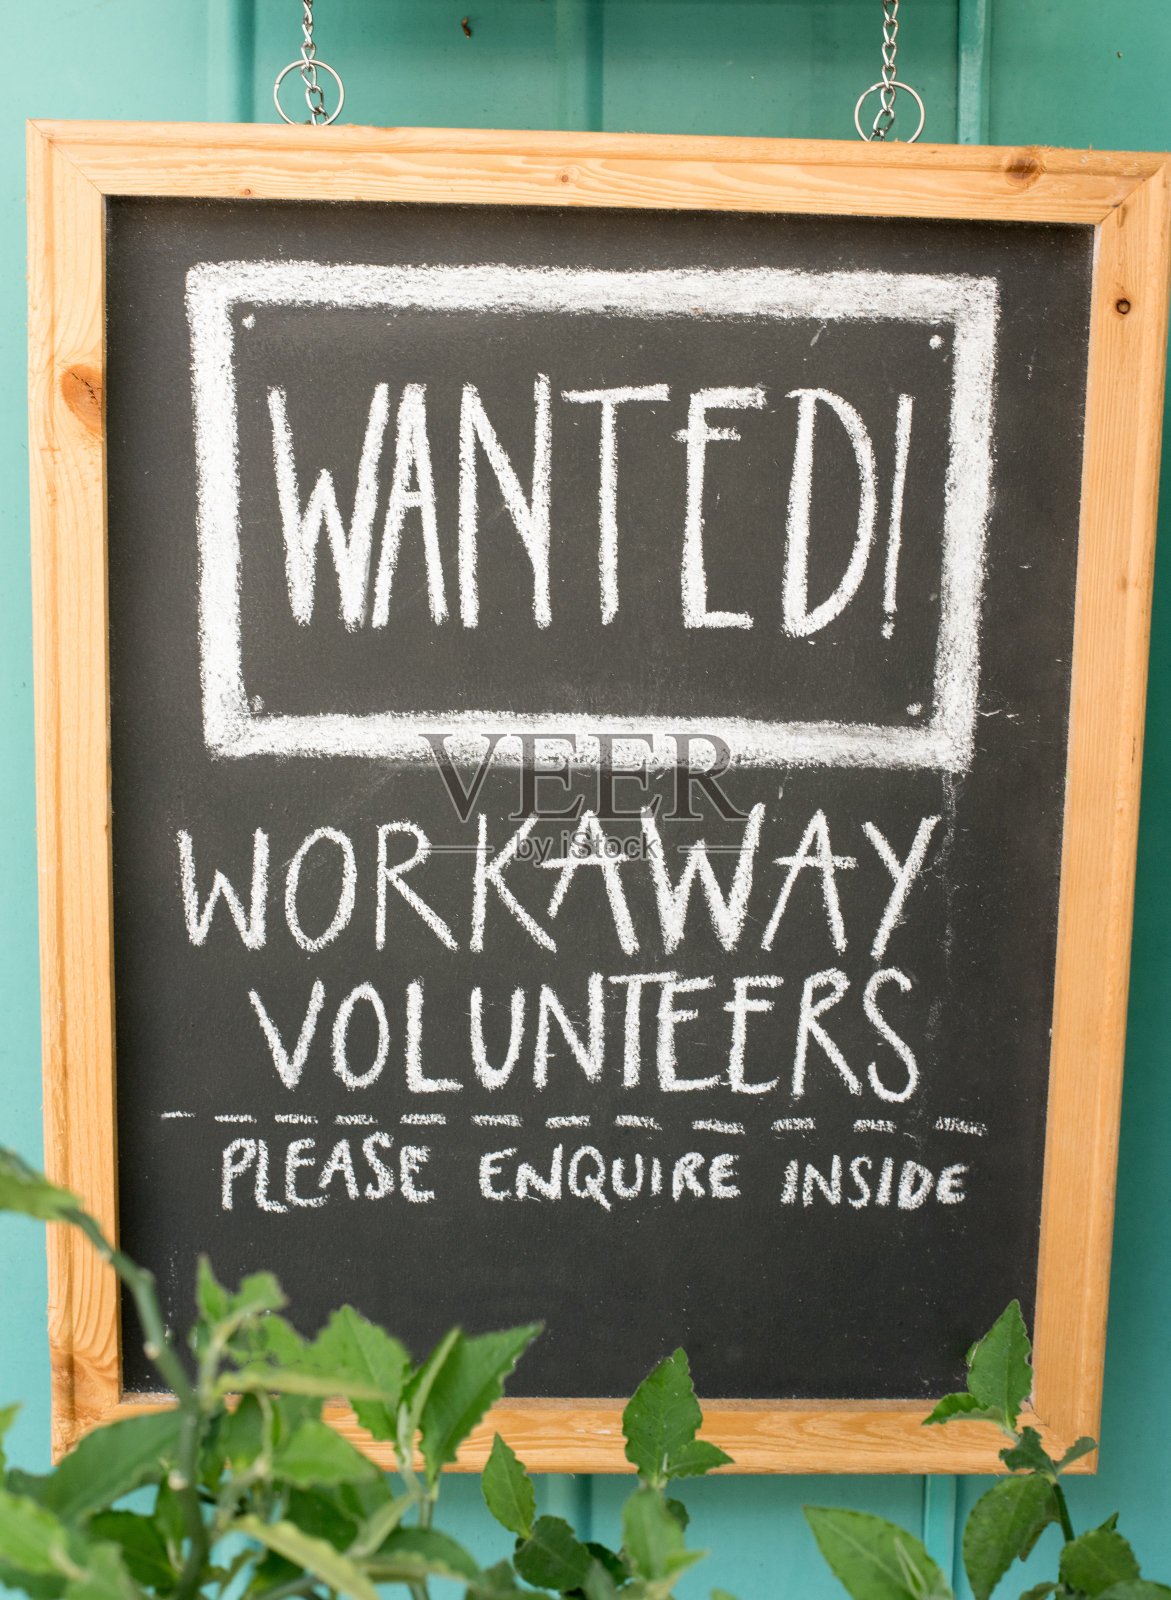 WANTED!
VEER
by iStock
WORKAWAY
VOLUNTEERS
PLEASE ENQUIRE INSIDE